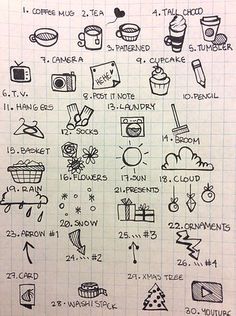 1. COFFEE MUG 2. TEA 4. TALL CHOCO
3. PATTERNED 5. TUMBLER
7. CAMERA 9. CUPCAKE
HEHE!
6. T.V. 8. POST IT NOTE 10. PENCIL
11. HANGERS 13. LAUNDRY
12. SOCKS
15. BASKET 14. BROOM
16. FLOWERS 17. SUN 18. CLOUD
19. RAIN 21. PRESENTS
20. SNOW 22. ORNAMENTS
23. ARROW #1 25. ... #3
24. ... #2 26. ... #4
27. CARD 29. XMAS TREE
28. WASHI STACK 30. YOUTUBE